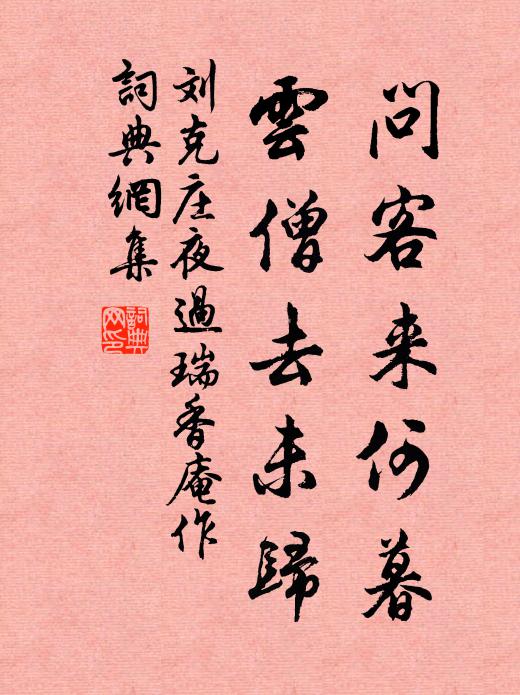 問客来何暮
雲僧去未歸
刘克庄夜過瑞香庵作
詞典網集
詞典网印